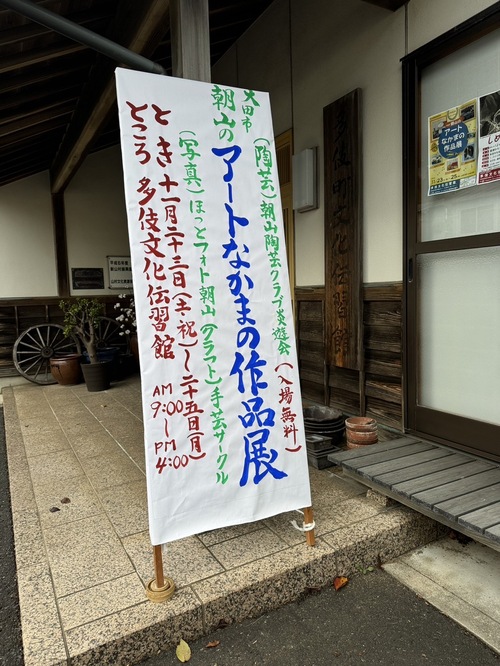 大田市
朝山の
アートなかまの作品展
(陶芸)朝山陶芸クラブ炎遊会
(入場無料)
(写真)ほっとフォト朝山(クラフト)手芸サークル
とき 十一月二十三日(土・祝)〜二十五日(月)
AM 9:00〜PM 4:00
ところ 多伎文化伝習館
多伎町文化伝習館
アート
なかまの
作品展